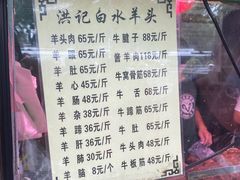 洪记白水羊头
羊头肉65元/斤 牛腱子 88元/斤
羊 眼65元/斤 酱羊肉118元/斤
羊 肚65元/斤 牛窝骨筋68元/斤
羊 心45元/斤 牛 舌 68元/斤
羊 肠48元/斤 牛蹄筋65元/斤
羊 杂38元/斤 牛 肚 65元/斤
羊 蹄36元/斤 牛头肉48元/斤
羊 肝36元/斤 牛板筋48元/斤
羊 肺30元/斤
羊 脑 8元/个